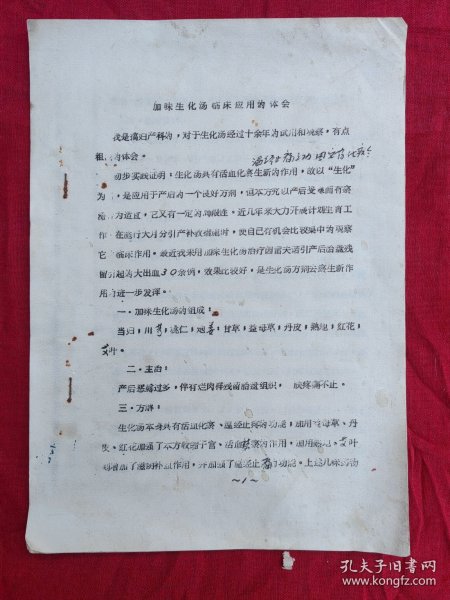 加味生化汤临床应用的体会
我是搞妇产科的，对于生化汤经过十余年的试用和观察，有点
粗 的体会。
初步实践证明：生化汤具有活血化瘀生新的作用，故以“生化”
为 ，是应用于产后的一个良好方剂，但本方究以产后受寒而有瘀
滞 为适宜，已又有一定的局限性。近几年来大力开展计划生育工
作 在施行大月分引产补救措施时，使自已有机会比较集中的观察
它 临床作用。最近我采用加味生化汤治疗因雷夫诺引产后胎盘残
留引起的大出血30余例，效果比较好，是生化汤方剂去瘀生新作
用 的进一步发挥。
一．加味生化汤的组成：
当归，川芎，桃仁，炮姜，甘草，益母草，丹皮，熟地，红花，
艾叶。
二．主治：
产后恶露过多，伴有烂肉样残留胎盘组织， 腹疼痛不止。
三．方解：
生化汤本身具有活血化瘀、温经止痛的功能，加用益母草、丹
皮、红花加强了本方收缩子宫、活血 瘀的作用，加用熟地、艾叶
则增加了滋阴补血作用，并加强了温经止 的功能。上述几味药物
～1～
孔夫子旧书网
www.kongfz.com